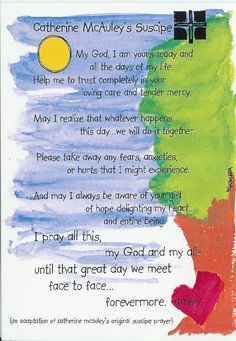 Catherine McAuley's Suscipe
My God, I am yours today and
all the days of my life.
Help me to trust completely in your
loving care and tender mercy.
May I realize that whatever happens
this day...we will do it together.
Please take away any fears, anxieties,
or hurts that I might experience.
And may I always be aware of your gift
of hope delighting my heart
and entire being.
I pray all this,
my God and my all-
until that great day we meet
face to face...
forevermore. amen.
(an adaptation of catherine mcauley's original suscipe prayer)